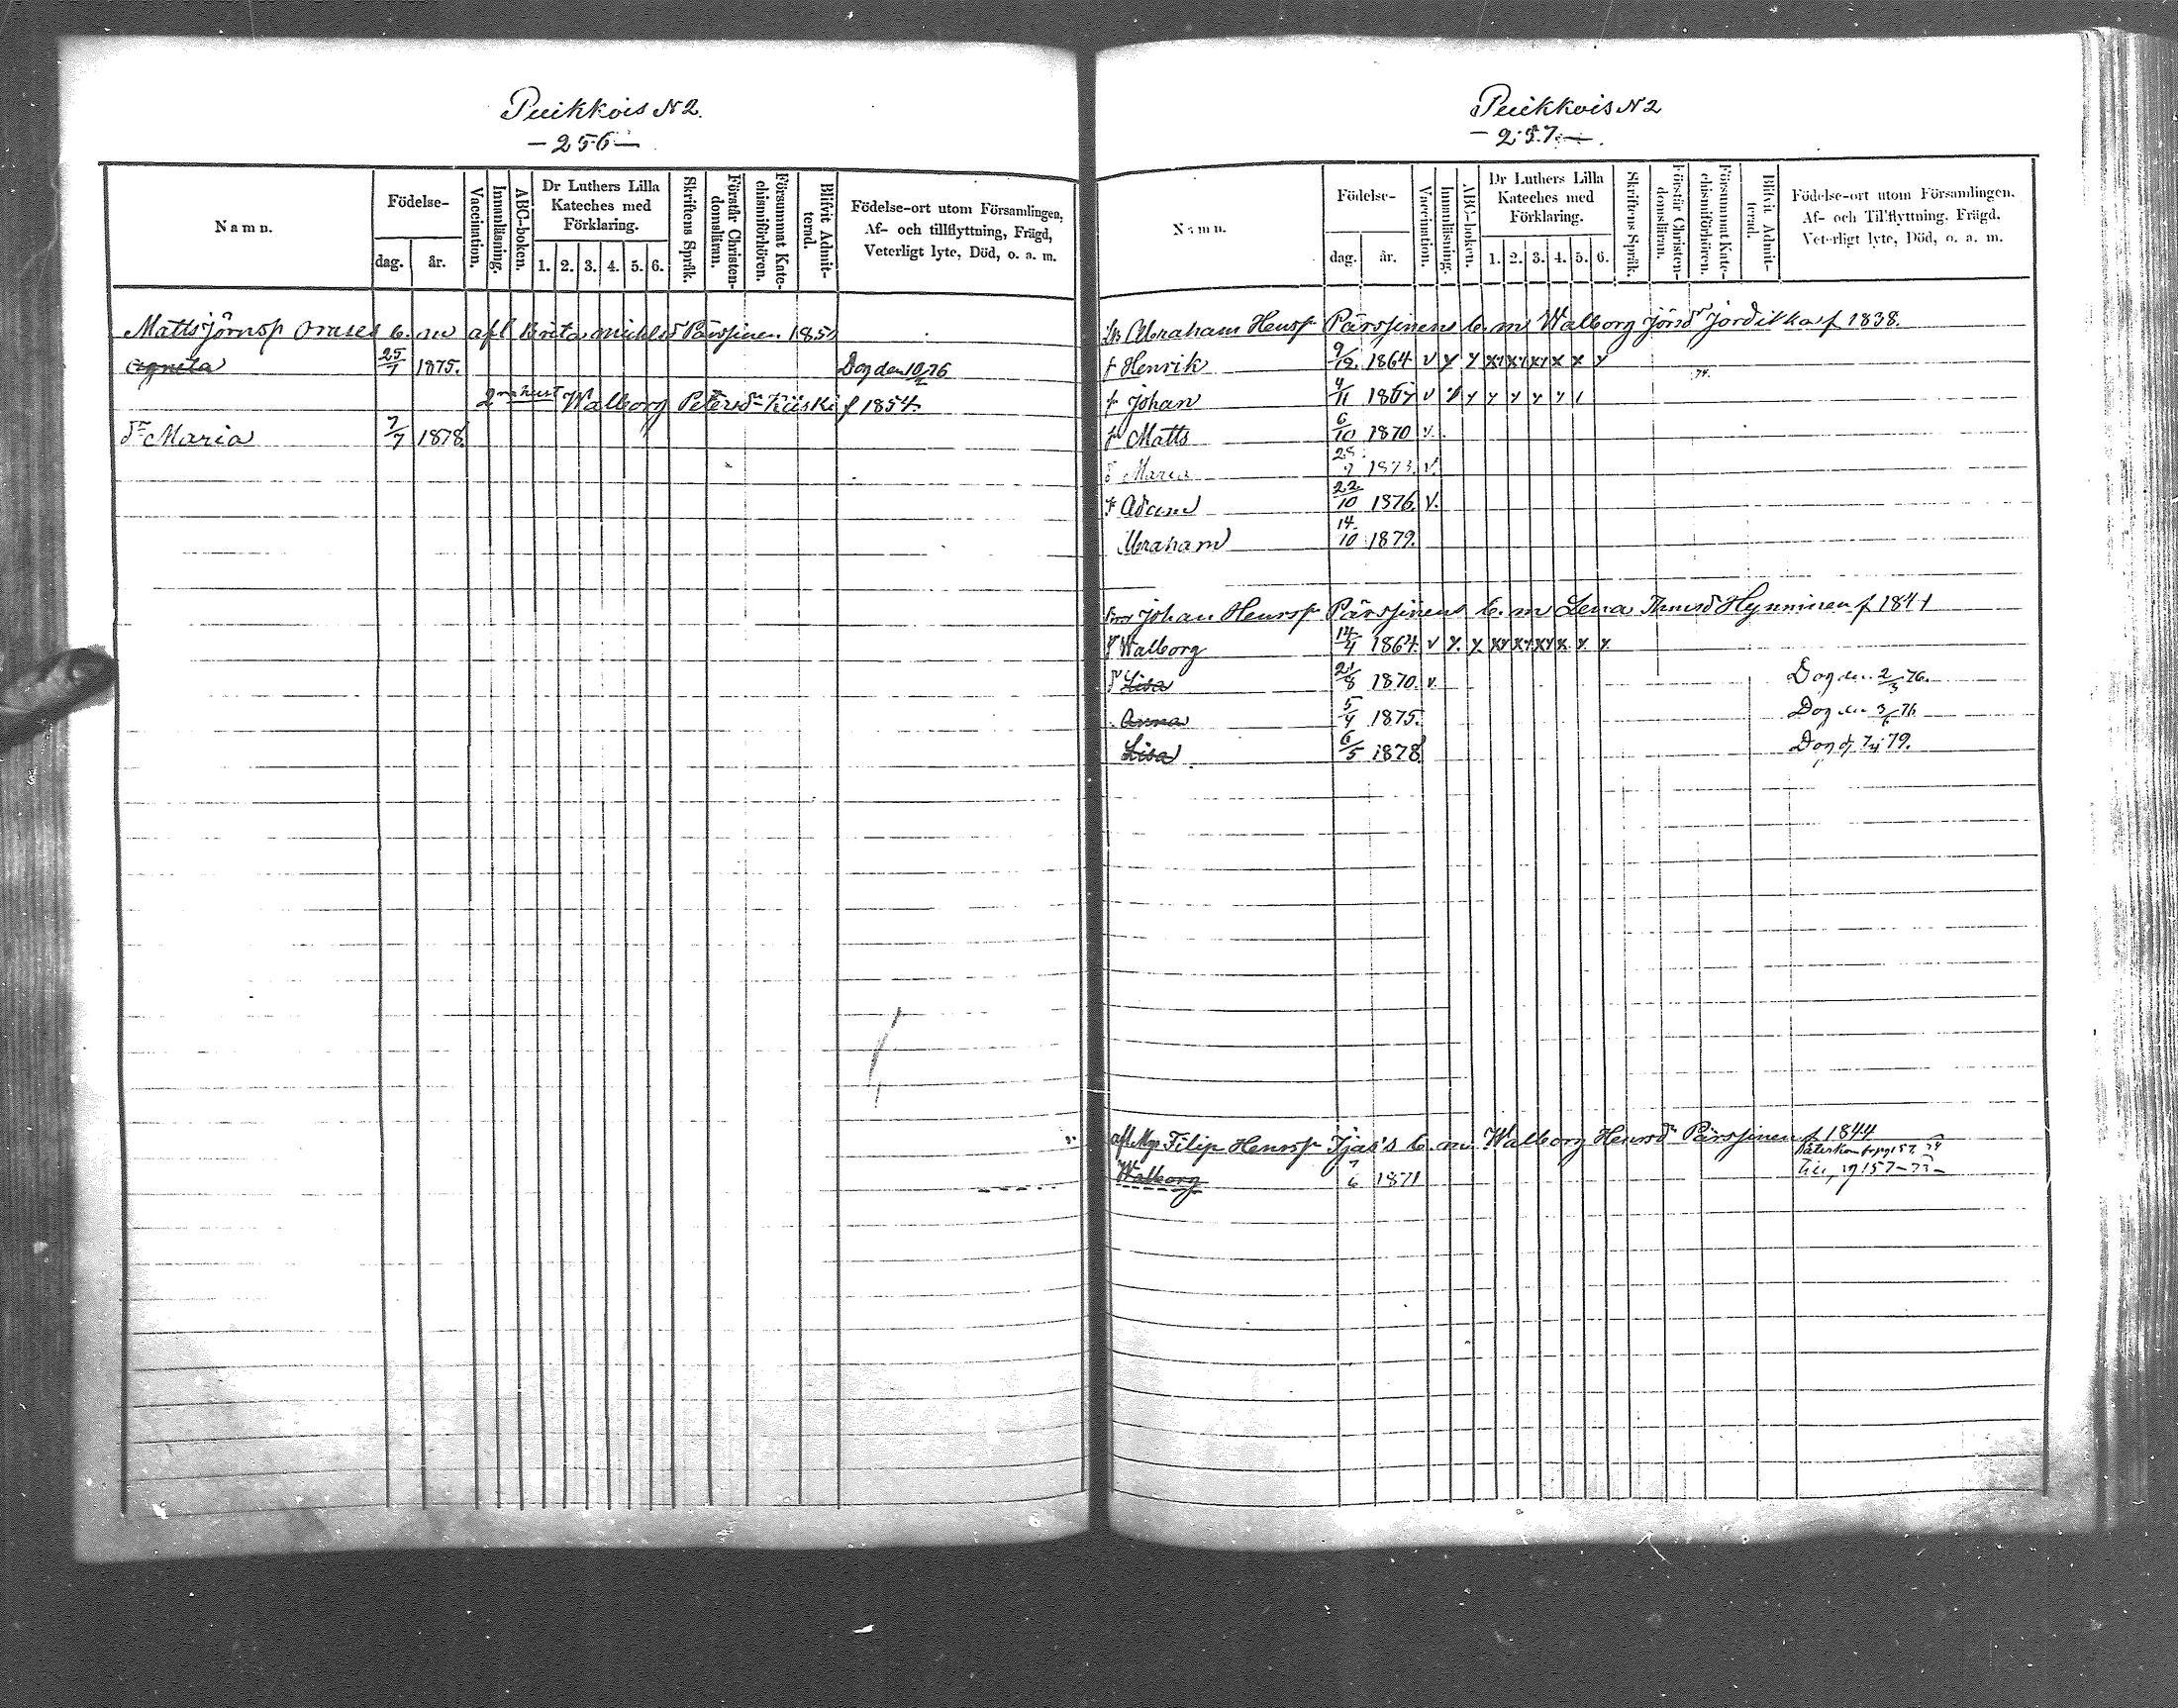 Puikkois N 2.
- 256 -
Namn.
Födelse-
dag.
år.
Vaccination.
Innanläsning.
ABC-boken.
Dr Luthers Lilla
Kateches med
Förklaring.
1. 2. 3. 4. 5. 6.
Skriftens Språk.
Förstår Christen-
domsläran.
Försummat Kate-
chismiförhören.
Blifvit Admit-
terad.
Födelse-ort utom Församlingen,
Af- och tillflyttning, Frägd,
Veterligt lyte, Död, o. a. m.
Matts Jörnsp b. m afl Brita Michlsd Pärssinen 185
Agneta 25/1 1875. Dog den 10 76
2 hust Walborg Petersdr Kiiski f 1854
dr Maria 7/7 1878.
Puikkois N 2
- 257 -
Namn.
Födelse-
dag.
år.
Vaccination.
Innanläsning.
ABC-boken.
Dr Luthers Lilla
Kateches med
Förklaring.
1. 2. 3. 4. 5. 6.
Skriftens Språk.
Förstår Christen-
domsläran.
Försummat Kate-
chismiförhören.
Blifvit Admit-
terad.
Födelse-ort utom Församlingen.
Af- och Tillflyttning. Frägd.
Veterligt lyte, Död, o. a. m.
Abraham Hensp Pärssinens b. m Walborg Jörsdr f 1838.
f Henrik 9/12 1864 v y y xy xy xy x x y
74.
Johan 4/11 1867 v y y y y y y
Matts 6/10 1870 v.
d Maria 28 1873. v
Adam 22/10 1876. v.
Abraham 14/10 1879.
Johan Henrsp Pärssinens b. m Lena Thmsd Hynninen f 1841
d Walborg 14/4 1864. v y. y xy xy xy x. y. y.
d Lisa 21/8 1870. v. Dog den 2/3 76.
Anna 5/4 1875. Dog den 3 76
Lisa 6/5 1878 Dog d 7 79.
afl. Filip Henrsp b. m. Walborg Henrsd Pärssinen f 1844
Walborg 1871